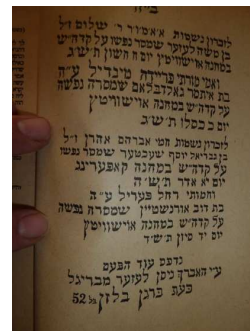 ב״ה
לזכרון נשמות א״אמו״ר ר׳ שלום ז״ל
בן משה לעזער שמסר נפשו על קדה״ש
במחנה אוישוויטץ יום ח חשון ת״ש״ג
ואמי מורתי פריידא מינדיל ע״ה
בת איתמר גאלדבלאט שמסרה נפשה
על קדה״ש במחנה אוישוויטץ
יום כ כסלו ת״ש״ג
לזכרון נשמות חמי אברהם אהרן ז״ל
בן גבריאל יוסף שעכטער שמסר נפשו
על קדה״ש במחנה קאפערינג
יום יא אדר ת״ש״ה
וחמותי רחל פעריל ע״ה
בת דוב אורנשטיין שמסרה נפשה
על קדה״ש במחנה אוישוויטץ
יום יד סיון ת״ש״ד
נדפס עוד הפעם
ע״י האברך ניסן לעזער מבריגל
כעת ברגן בלזן בל 52